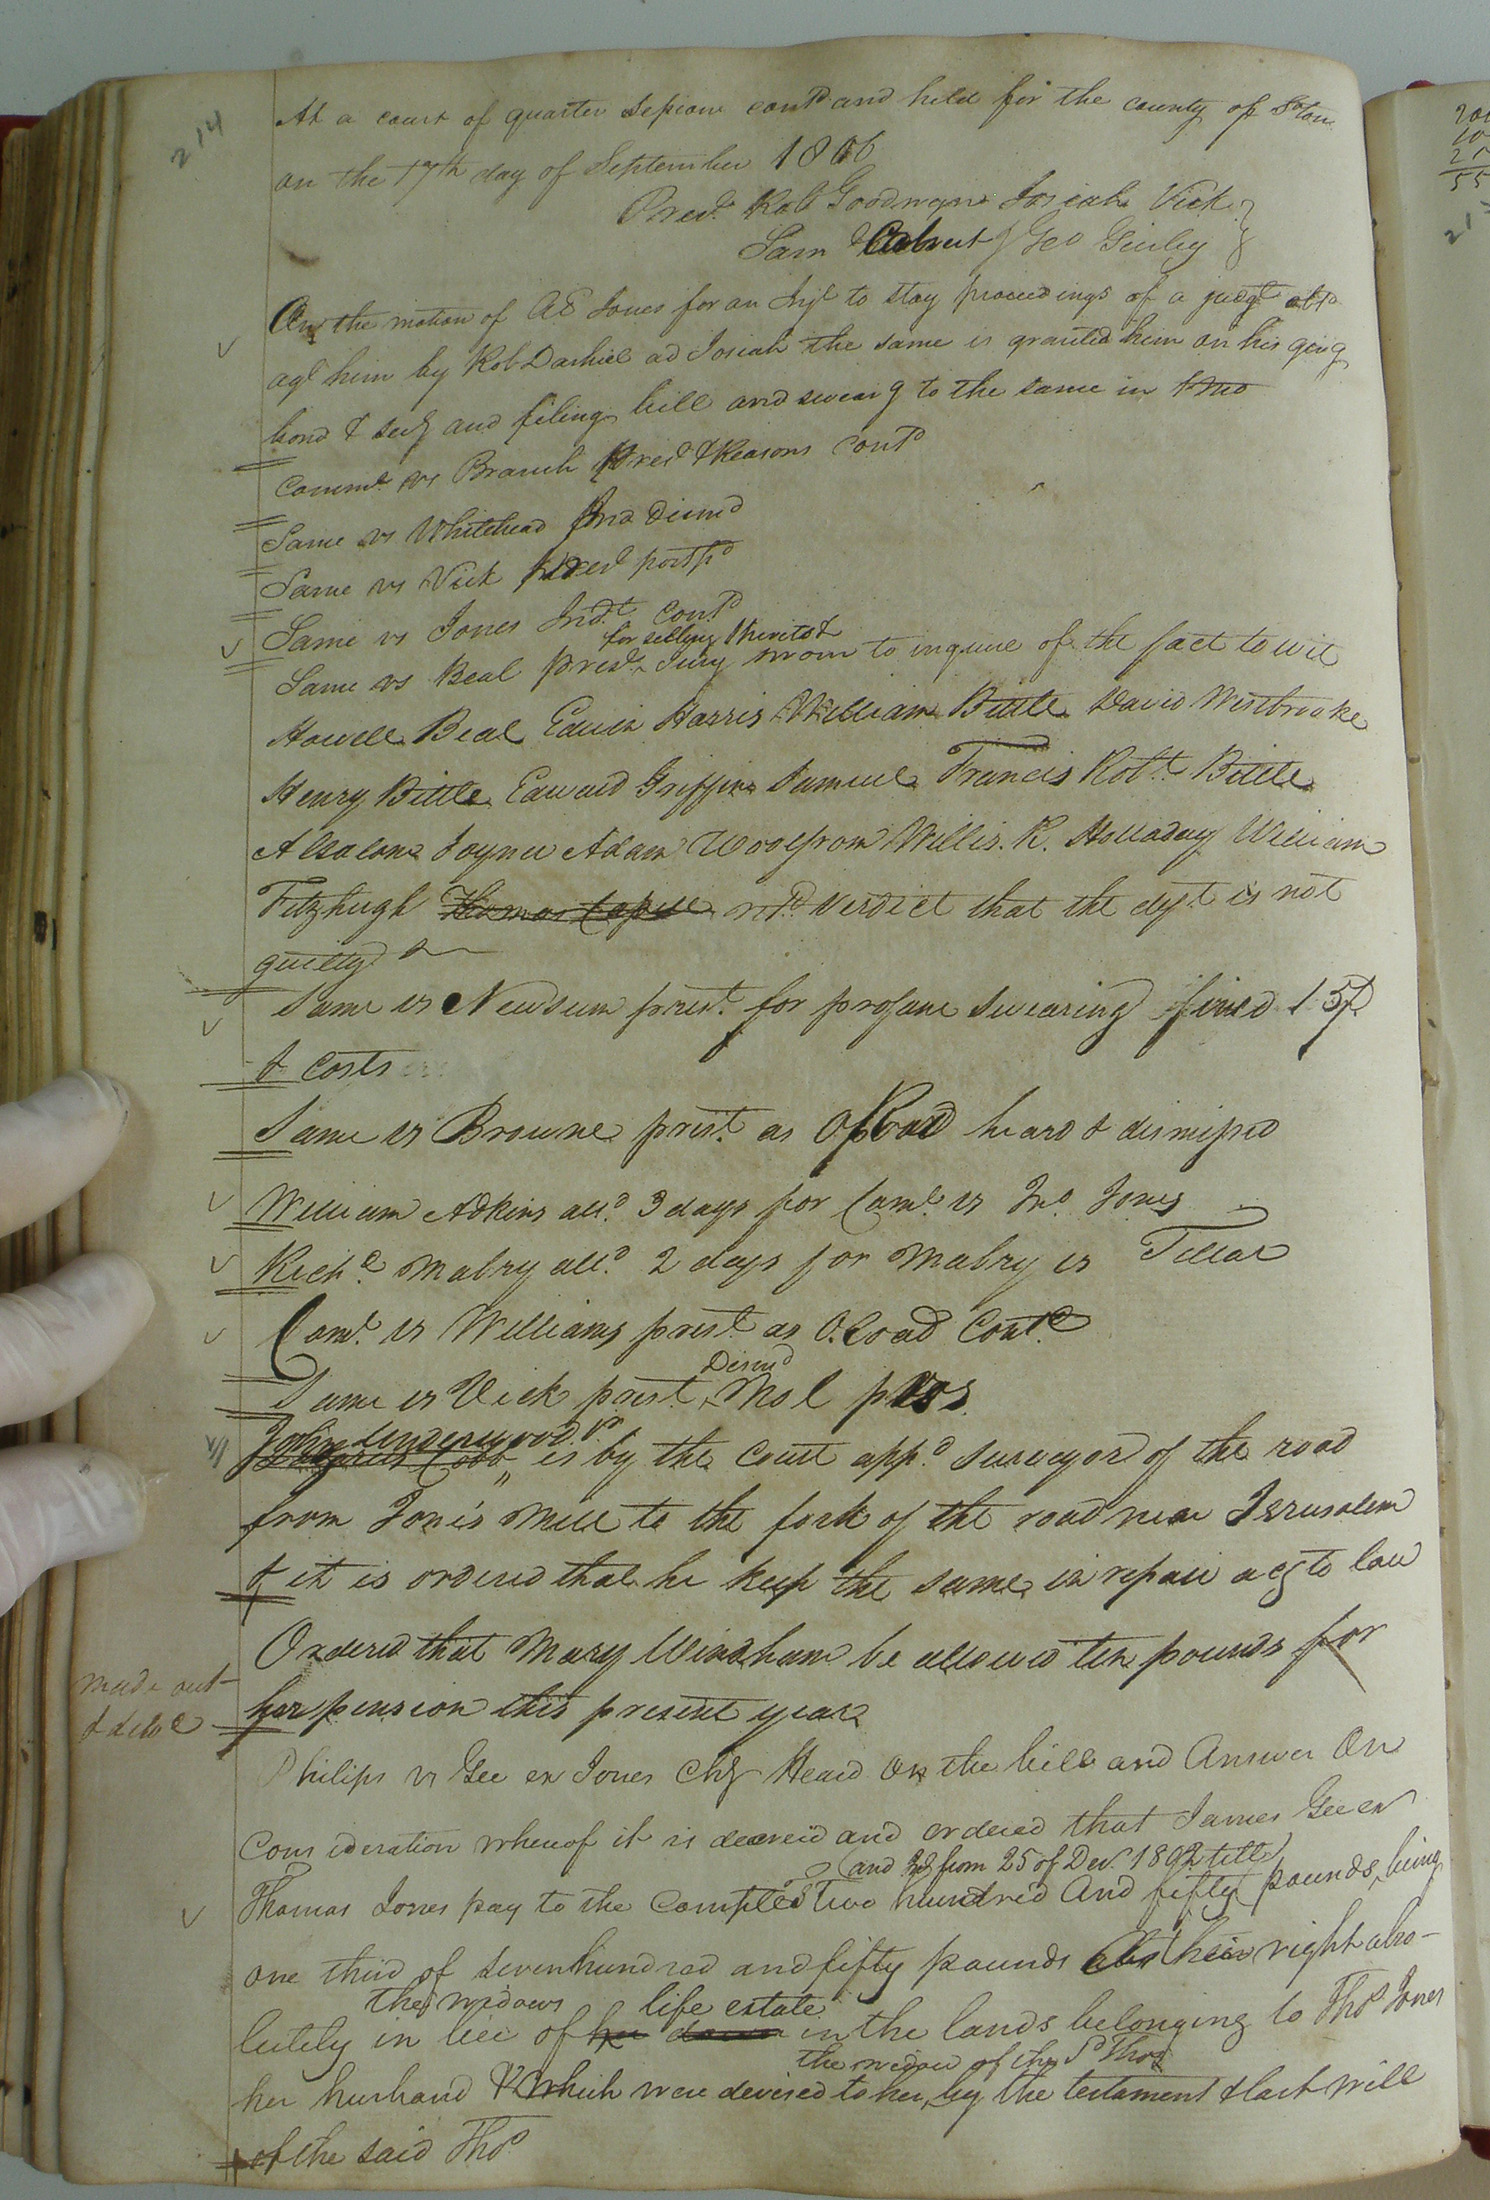 214
At a court of quarter Session cont'd and held for the county of S'ton
on the 17th day of September 1806
Pres.t Rob Goodwyn Josiah Vick
Sam Calvert Geo Gurley
On the motion of AE Jones for an Inj.t to stay proceedings of a judgt obt.d
ag.t him by Rob Dashiel ad Josiah the same is granted him on his givg
bond & sec.y and filing bill and swearg to the same in
Commo vs Branch Pres.t & Reasons cont.d
Same vs Whitehead Ind. Dism.d
Same vs Vick Pres.t postp.d
Same vs Jones Ind.t Cont.d
for selling
Same vs Beal pres.t Jury sworn to inquire of the fact to wit
Howell Beal Edwin Harris William Bittle David Westbrooke
Henry Bittle Edward Griffin Samuel Francis Rob.t Bittle
Absalom Joyner Adam Woolfrom Willis. K. Holladay William
Fitzhugh Thomas ret.d Verdict that the deft is not
guilty
Same vs Newsum prest. for profane swearing fined
& Costs
Same vs Browne prest. as O Road heard & dismissed
William Adkins all.d 3 days for Com.o vs Jno. Jones
Rich.d Mabry all.d 2 days for Mabry vs Tillar
Com.o vs Williams prest. as O. Road Cont.d
Dism.d
Same vs Vick prest. Nol pros
John Underwood
is by the Court app.d Surveyor of the road
from Jones Mill to the fork of the road near Jerusalem
& it is ordered that he keep the same in repair acg to law
Ordered that Mary Windham be allowed ten pounds for
made out
her pension this present year
& del.d
Philips vs Gee ex Jones Chy Heard On the bill and Answer On
Consideration whereof it is decreed and ordered that James Gee ex
(and from 25 of Dec. 1802 till)
Thomas Jones pay to the Complts Two hundred And fifty pounds, being
one third of seven hundred and fifty pounds their right abso-
the widows life estate
lutely in lieu of her dower in the lands belonging to Thos Jones
the widow of the sd Thos
her husband & which were devised to her, by the testament & last will
of the said Thos